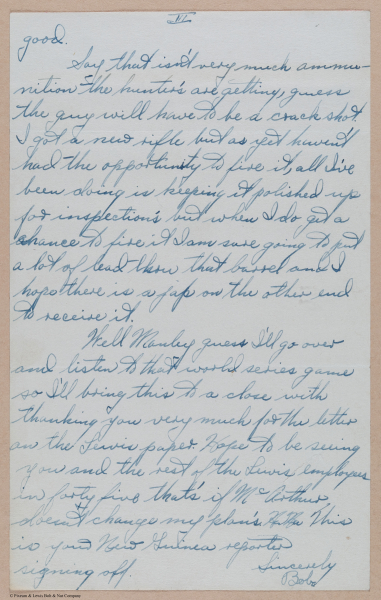 VI
good.
Say that isn't very much ammu-
nition the hunter's are getting, guess
the guy will have to be a crack shot.
I got a new rifle but as yet haven't
had the opportunity to fire it, all I've
been doing is keeping it polished up
for inspection's but when I do get a
chance to fire it I am sure going to put
a lot of lead thru that barrel and I
hope there is a jap on the other end
to receive it.
Well Manley guess I'll go over
and listen to that world series game
so I'll bring this to a close with
thanking you very much for the letter
on the Lewis paper. Hope to be seeing
you and the rest of the Lewis employees
in forty five that's if McArthur
doesn't change my plan's. Ha Ha This
is your New Guinea reporter
signing off.
Sincerely
Bob